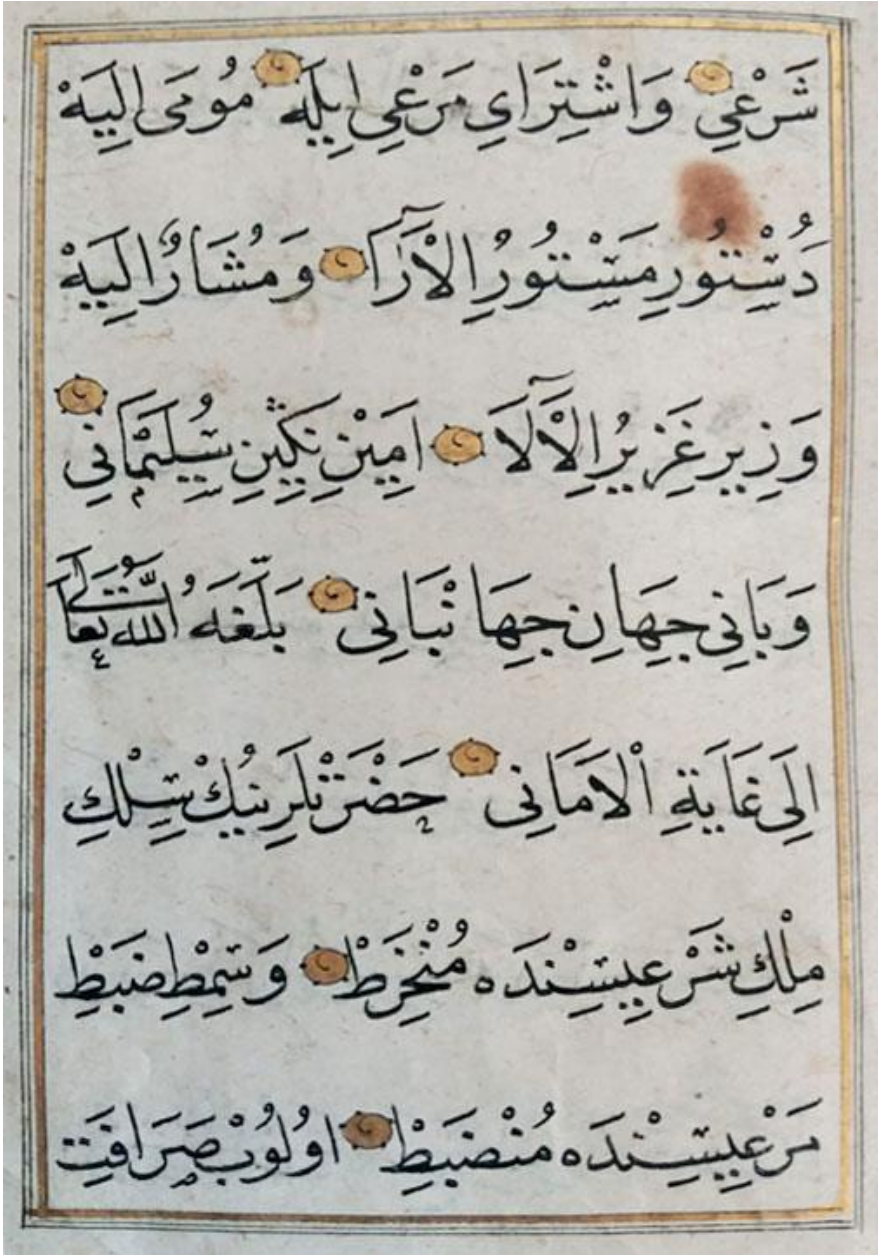 شَرْعِي وَاشْتِرَايِ مَرْعِي اِيلَهْ مُومَى اِلَيْهْ
دُسْتُورِ مَسْتُورُ الْاٰرَا وَمُشَارٌ اِلَيْهْ
وَزِيرِ غَزِيرُ الْاٰلَا اَمِينِ نَكِينِ سُلَيْمَانِي
وَبَانِي جِهَانِ جِهَانْبَانِي بَلَّغَهُ اللّٰهُ تَعَالَى
اِلَى غَايَةِ الْاَمَانِي حَضْرَتْلَرِينُكْ سِلْكِ
مِلْكِ شَرْعِيسِنْدَه مُنْخَرِطْ وَسِمْطِ ضَبْطِ
مَرْعِيسِنْدَه مُنْضَبِطْ اُولُوبْ صَرَافَتِ